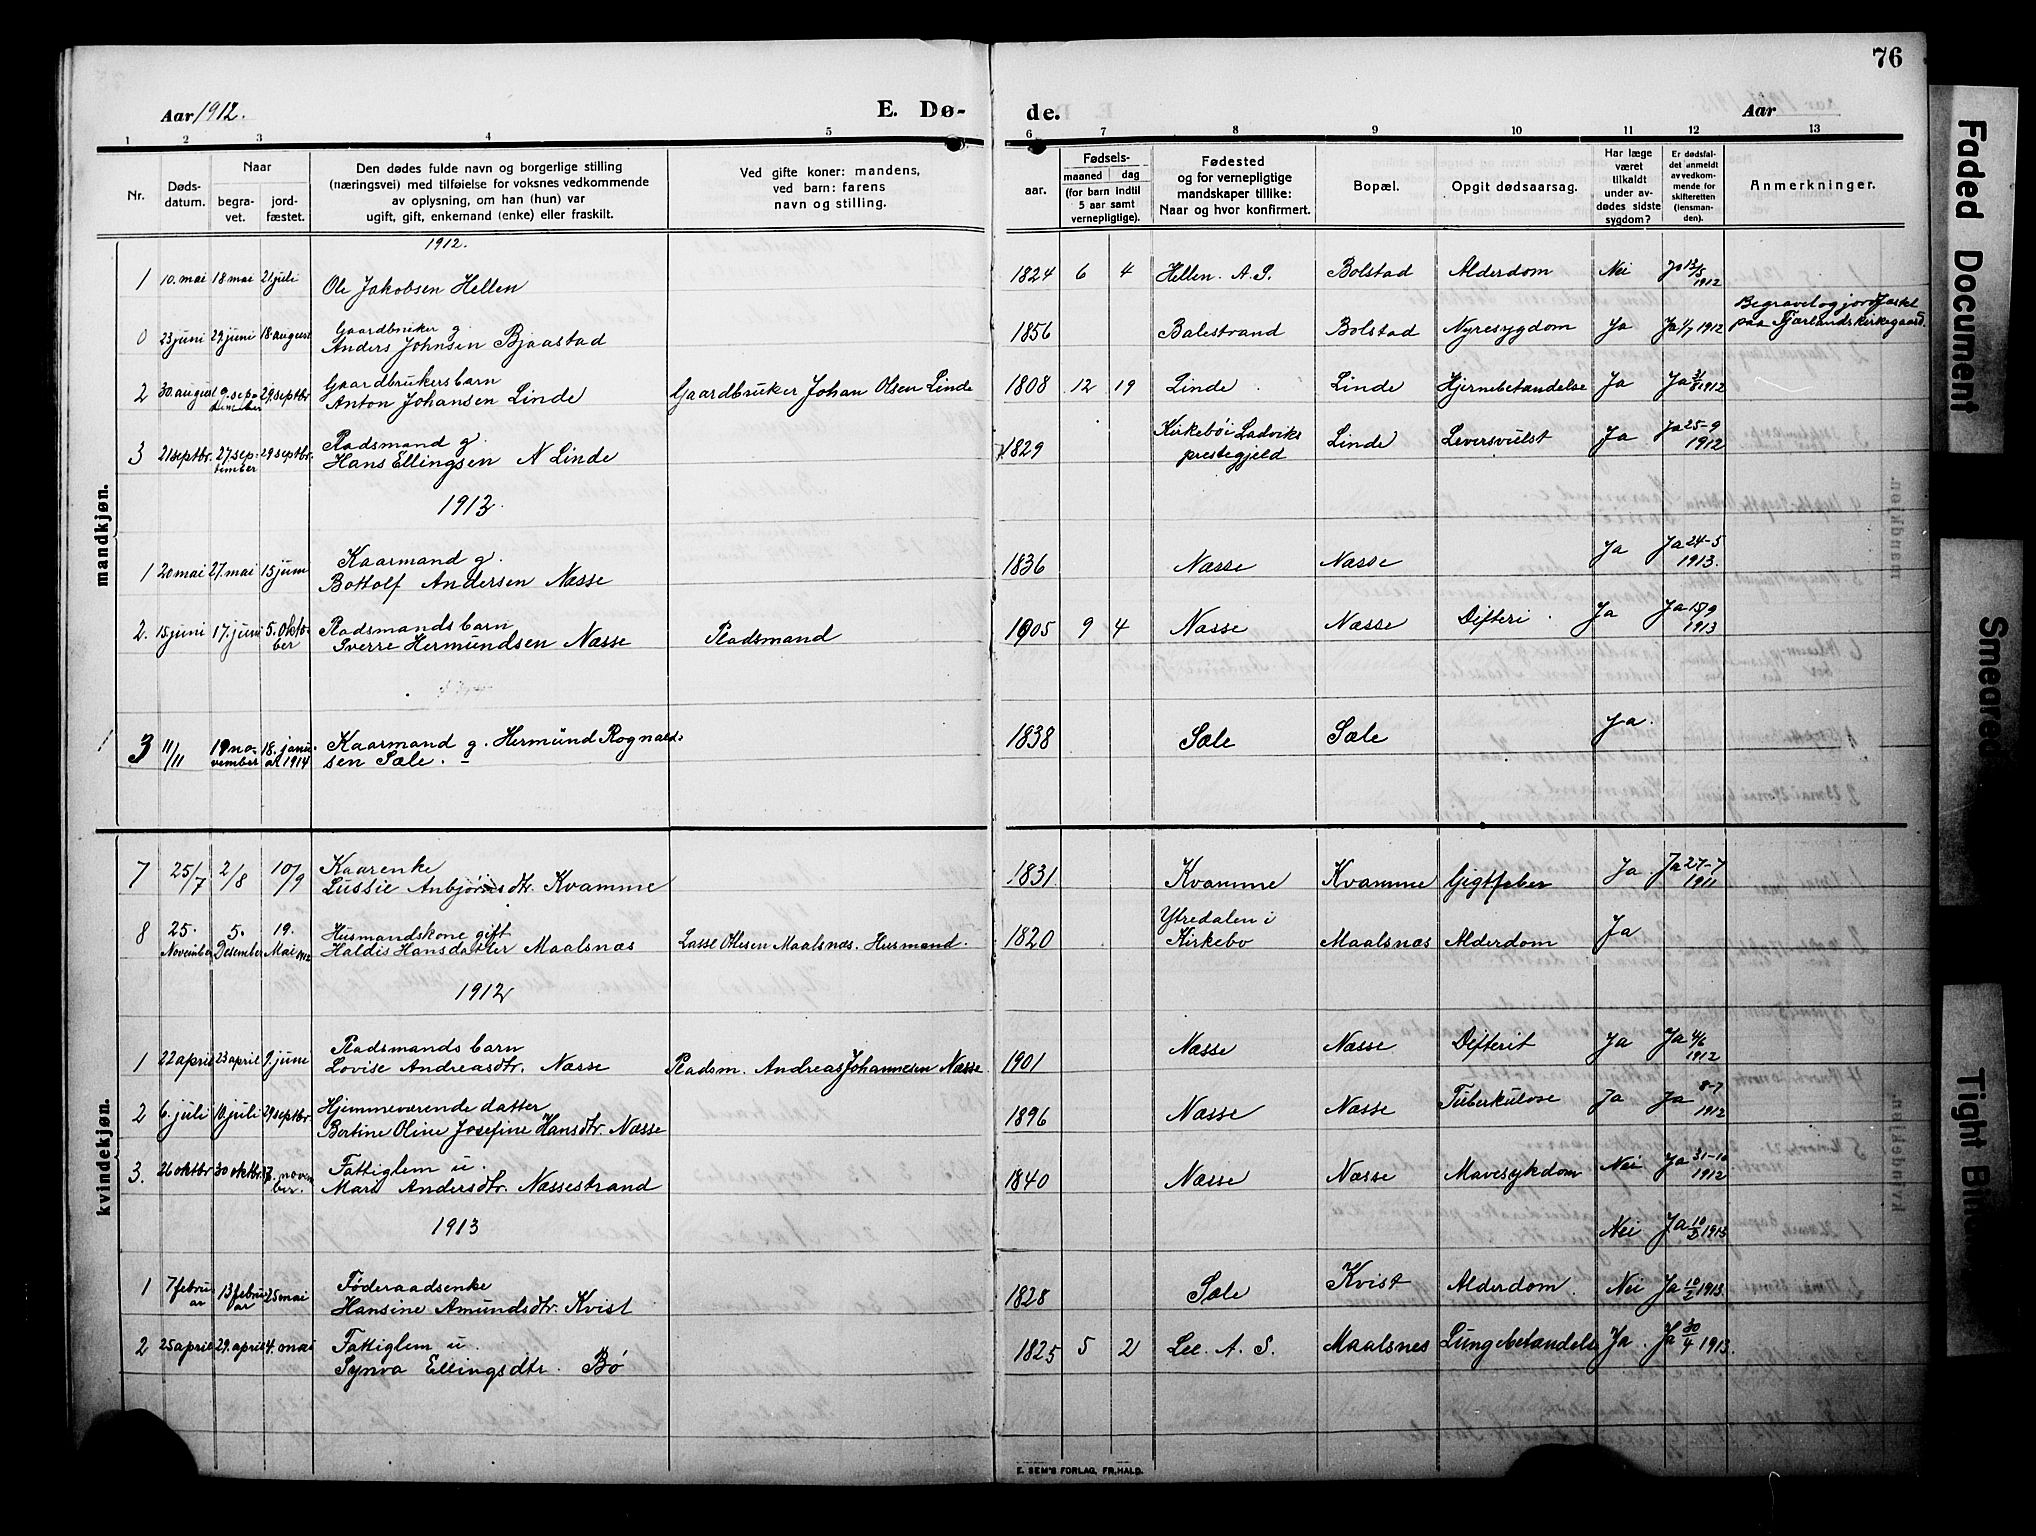 76
Aar 1912.
E. Dø-
de.
Aar
1 2 3 4 5 6 7 8 9 10 11 12 13
Nr.
Døds-
datum.
Naar
begra-
vet.
jord-
fæstet.
Den dødes fulde navn og borgerlige stilling
(næringsvei) med tilføielse for voksnes vedkommende
av oplysning, om han (hun) var
ugift, gift, enkemand (enke) eller fraskilt.
Ved gifte koner: mandens,
ved barn: farens
navn og stilling.
aar.
Fødsels-
maaned dag
(for barn indtil
5 aar samt
vernepligtige).
Fødested
og for vernepligtige
mandskaper tillike:
Naar og hvor konfirmert.
Bopæl.
Opgit dødsaarsag.
Har læge
været
tilkaldt
under av-
dødes sidste
sygdom?
Er dødsfal-
det anmeldt
av vedkom-
mende for
skifteretten
(lensman-
den).
Anmerkninger.
mandkjøn.
1912.
1 10. mai 18 mai 21 juli Ole Jakobsen Hellen 1824 6 4 Hellen. A. S. Bolstad Alderdom Nei Ja 12/5 1912
0 23 juni 29. juni 18. august Gaardbruker g.
Anders Johnsen Bjaastad 1856 Balestrand Bolstad Nyresygdom Ja Ja 1/7 1912 Begravet og jordfæstet
paa Fjærlands kirkegaard.
2 30. august 9. sep-
tember 29. septbr Gaardbrukersbarn
Anton Johansen Linde Gaardbruker Johan Olsen Linde 1808 12 19 Linde Linde Hjernebetændelse Ja Ja 1912
3 21 septbr. 27. sep-
tember 29 septbr. Pladsmand g.
Hans Ellingsen N Linde 1829 Kirkebø i Ladviks
prestegjeld Linde Leversvulst Ja Ja 25-9
1912
1913.
1 20 mai 27. mai 15 juni Kaarmand g.
Bottolf Andersen Næsse 1836 Næsse Næsse Ja Ja 24-5
1913.
2. 15 juni 17. juni 5. Okto-
ber Pladsmandsbarn
Sverre Hermundsen Næsse Pladsmand 1905 9 4 Næsse Næsse Difteri Ja Ja 15/9
1913
3 11/11 19 no-
vember 18. janu-
ar 1914 Kaarmand g. Hermund Rognald-
sen Sæle. 1838 Sæle Sæle Ja.
kvindekjøn.
7 25/7 2/8 10/9 Kaarenke
Lussie Anbjørnsdtr. Kvamme 1831 Kvamme Kvamme Gigtfeber Ja Ja 27-7
1911
8 25.
November 5.
Desember 19.
Mai 1912 Husmandskone gift
Haldis Hansdatter Maalsnæs Lasse Olsen Maalsnæs. Husmand. 1820 Ytredalen i
Kirkebø Maalsnæs Alderdom Ja
1912
1 22 april 23 april 9. june Pladsmandsbarn
Lovise Andreasdtr. Næsse Pladsm. Andreas Johannesen Næsse 1901 Næsse Næsse Difterit Ja Ja 4/6
1912
2 6. juli 10 juli 29 septbr. Hjemmeværende datter
Bertine Oline Josefine Hansdtr. Næsse 1896 Næsse Næsse Tuberkulose Ja Ja 8-7
1912
3. 26 oktbr. 30 oktbr. 3. novem-
ber. Fattiglem u.
Mari Andersdtr. Næssestrand 1840 Næsse Næsse Mavesykdom Nei Ja 31-10
1912
1913
Nei Ja 10/2 1913
1 7 febru-
ar 13 febru-
ar 25 mai Føderaadsenke
Hansine Amundsdtr. Kvist 1828 Sæle Kvist Alderdom. Nei Ja 10/2 1913.
2 25 april 29. april 4. mai Fattiglem u.
Synva Ellingsdtr. Bø 1825 5 2 Lee. A. S. Maalsnes Lungebetændelse Ja. Ja 30/4 1913.
E. SEM'S FORLAG, FR.HALD.
Faded Document
Smeared
Tight Bin